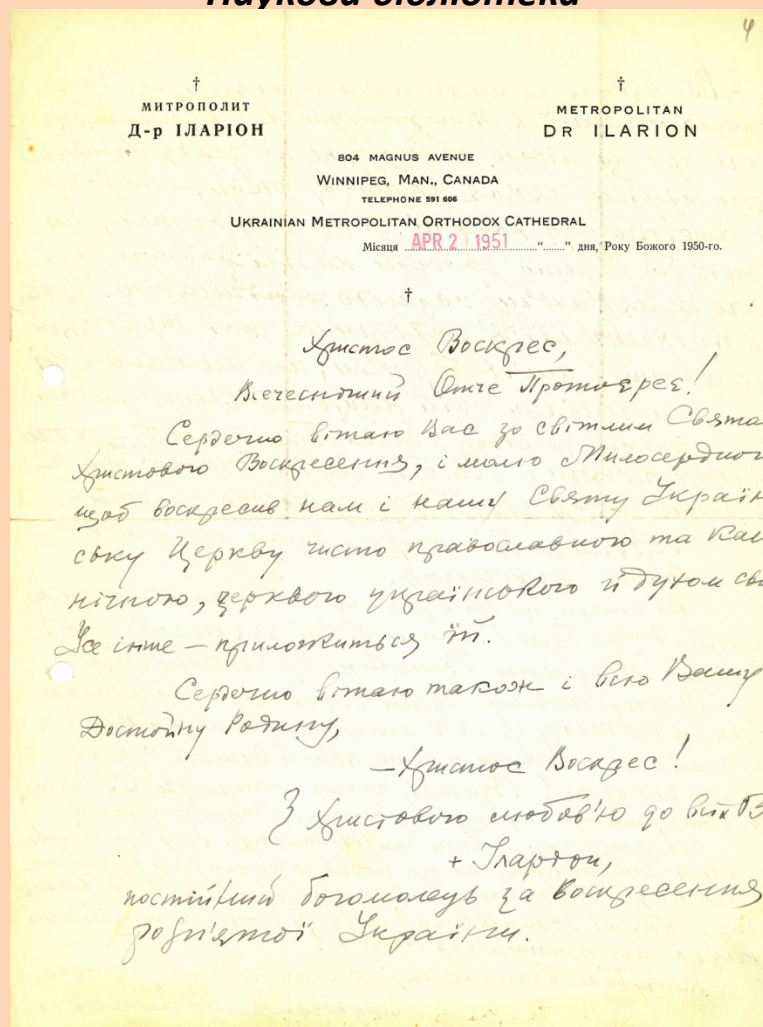 Наукова бібліотека
4
†
МИТРОПОЛИТ
Д-р ІЛАРІОН
†
METROPOLITAN
DR ILARION
804 MAGNUS AVENUE
WINNIPEG, MAN., CANADA
TELEPHONE 591 606
UKRAINIAN METROPOLITAN ORTHODOX CATHEDRAL
Місяця APR 2 1951 “......” дня, Року Божого 1950-го.
†
Христос Воскрес,
Всечесніший Отче Протоєрее!
Сердечно вітаю Вас зо світлим Свята
Христового Воскресення, і молю Милосердного
щоб воскресив нам і нашу Святу Україн
ську Церкву чисто православною та Кан
нічною, церквою українською й духом сво
Усе інше – приложиться їй.
Сердечно вітаю також і всю Вашу
Достойну Родину,
– Христос Воскрес!
З Христовою любов'ю до всіх В
+ Іларіон,
постійний богомолець за Воскресення
розп'ятої України.